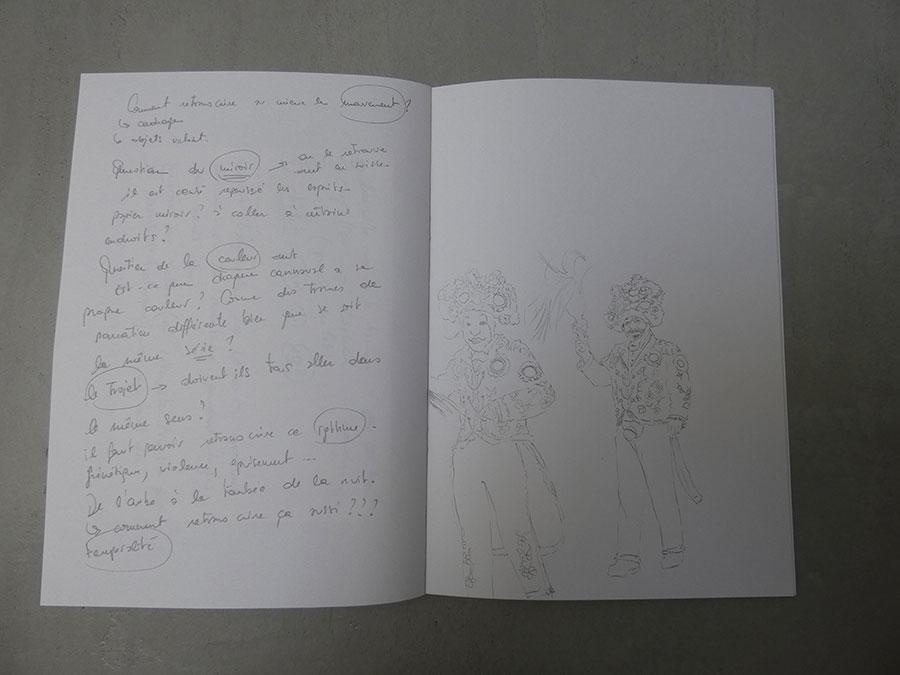 Comment retranscrire au mieux le mouvement ?
↳ cadrage
↳ objets volant.
Question du miroir → on le retrouve
il est censé repoussé les esprits
papier miroir ? à coller à certains
endroits ?
Question de la couleur
Est-ce que chaque carnaval a sa
propre couleur ? Comme des trames de
narration différente bien que se soit
la même série ?
le Trajet → doivent ils tous aller dans
le même sens ?
il faut pouvoir retranscrire ce rythme.
frénétique, violence, épuisement ...
De l'aube à la tombée de la nuit.
↳ comment retranscrire ça aussi ???
temporalité